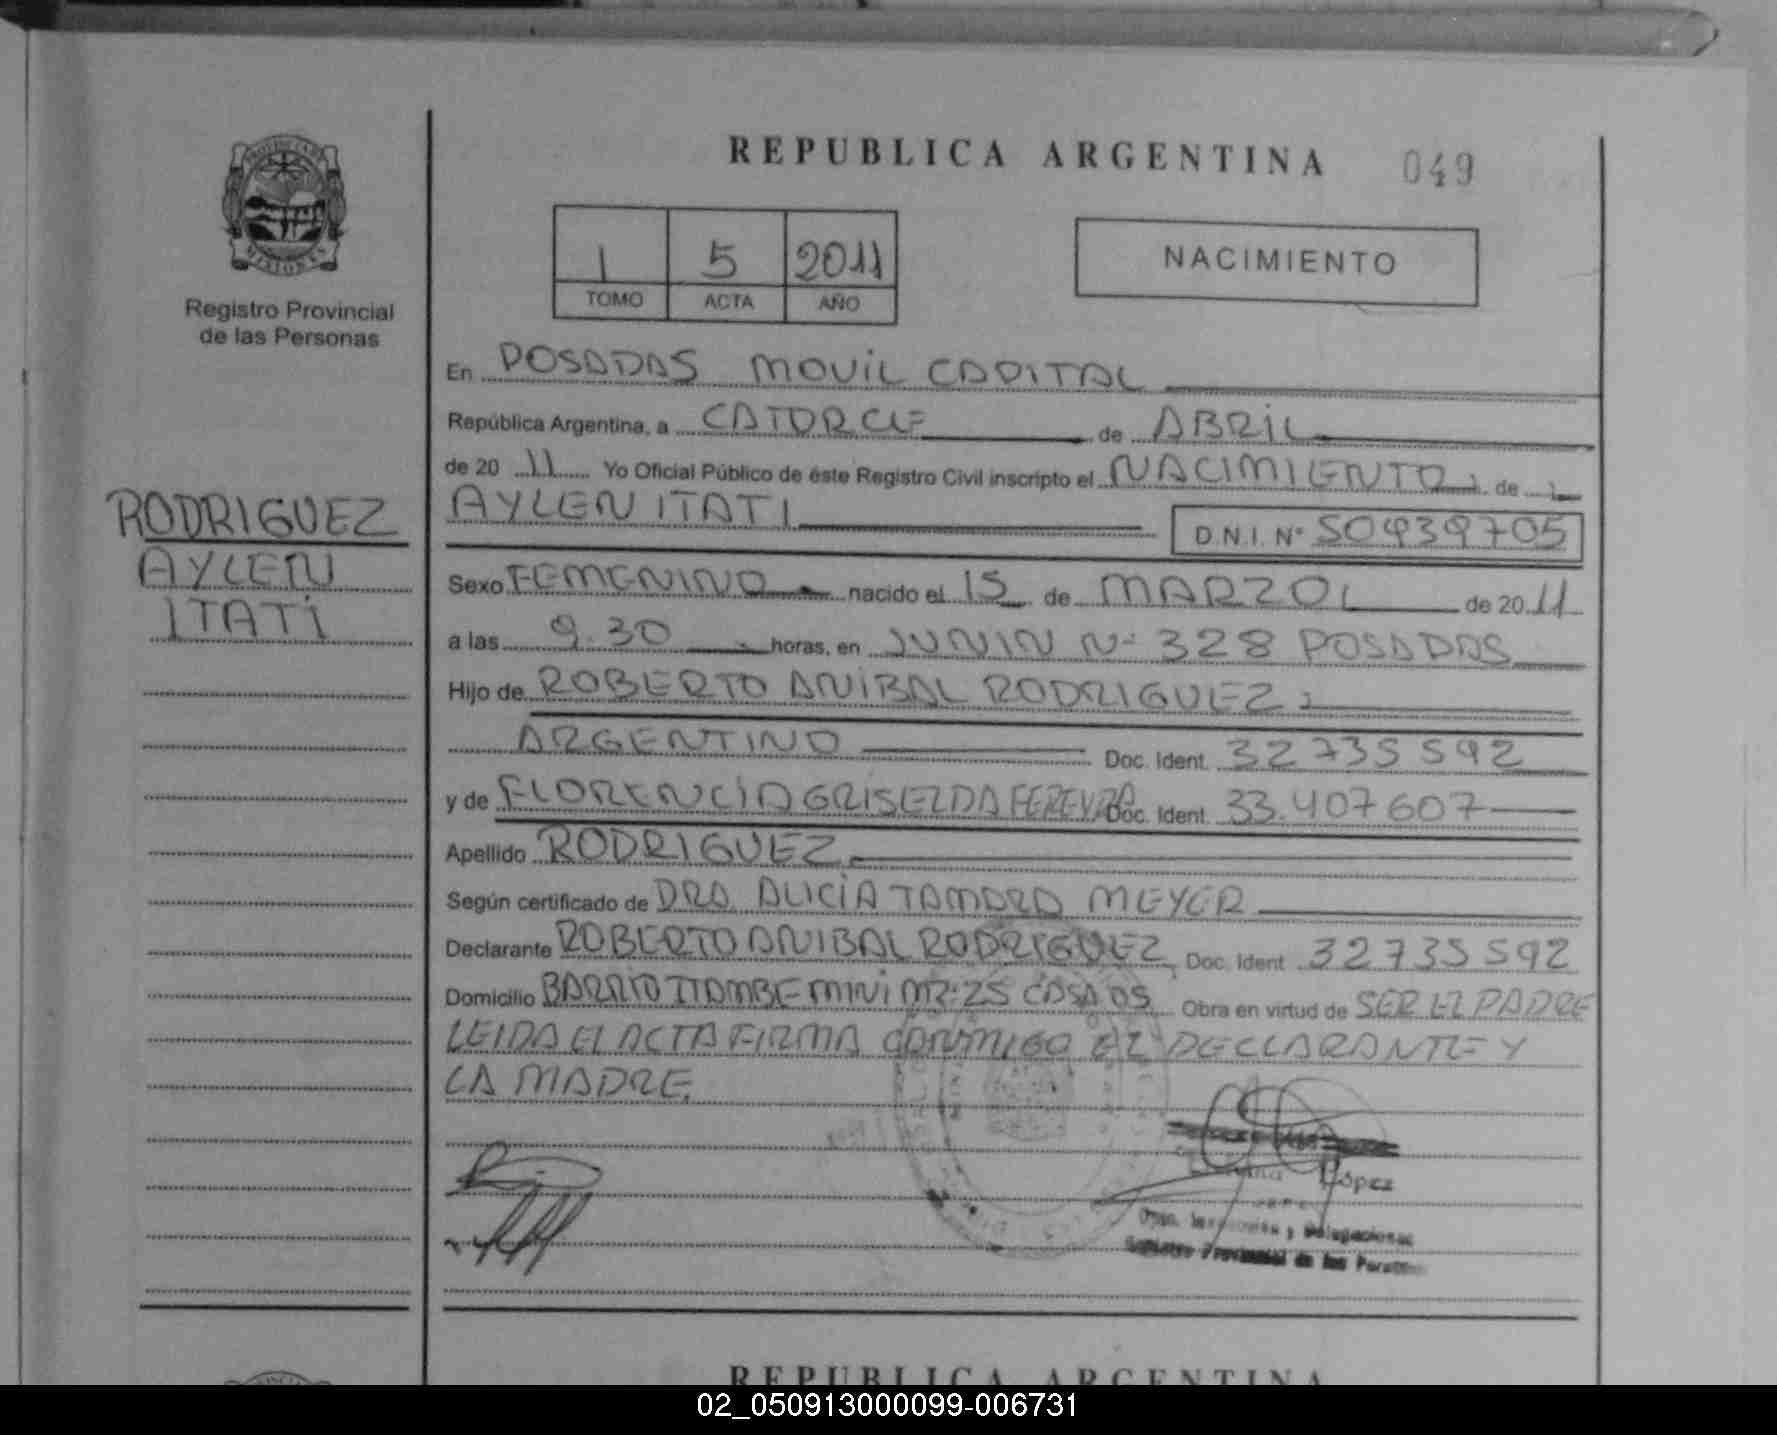 REPUBLICA ARGENTINA 049
PROVINCIA DE
MISIONES
Registro Provincial
de las Personas
1 5 2011
TOMO ACTA AÑO
NACIMIENTO
En POSADAS MOVIL CAPITAL
República Argentina, a CATORCE de ABRIL
de 20 11 Yo Oficial Público de éste Registro Civil inscripto el NACIMIENTO de
AYLEN ITATI
D.N.I. Nº 50439705
RODRIGUEZ
AYLEN
ITATI
Sexo FEMENINO nacido el 15 de MARZO de 20 11
a las 9.30 horas, en JUNIN Nº 328 POSADAS
Hijo de ROBERTO ANIBAL RODRIGUEZ
ARGENTINO Doc. Ident. 32735592
y de FLORENCIA GRISELDA FEREYRA Doc. Ident. 33.407607
Apellido RODRIGUEZ
Según certificado de DRA. ALICIA TAMARA MEYER
Declarante ROBERTO ANIBAL RODRIGUEZ Doc. Ident 32735592
Domicilio BARRIO ITAMBE MINI MZ:25 CASA 05 Obra en virtud de SER EL PADRE
LEIDA EL ACTA FIRMA CONMIGO EL DECLARANTE Y
LA MADRE.
López
y Delegaciones
Registro Provincial de las Personas
REPUBLICA ARGENTINA
02_050913000099-006731